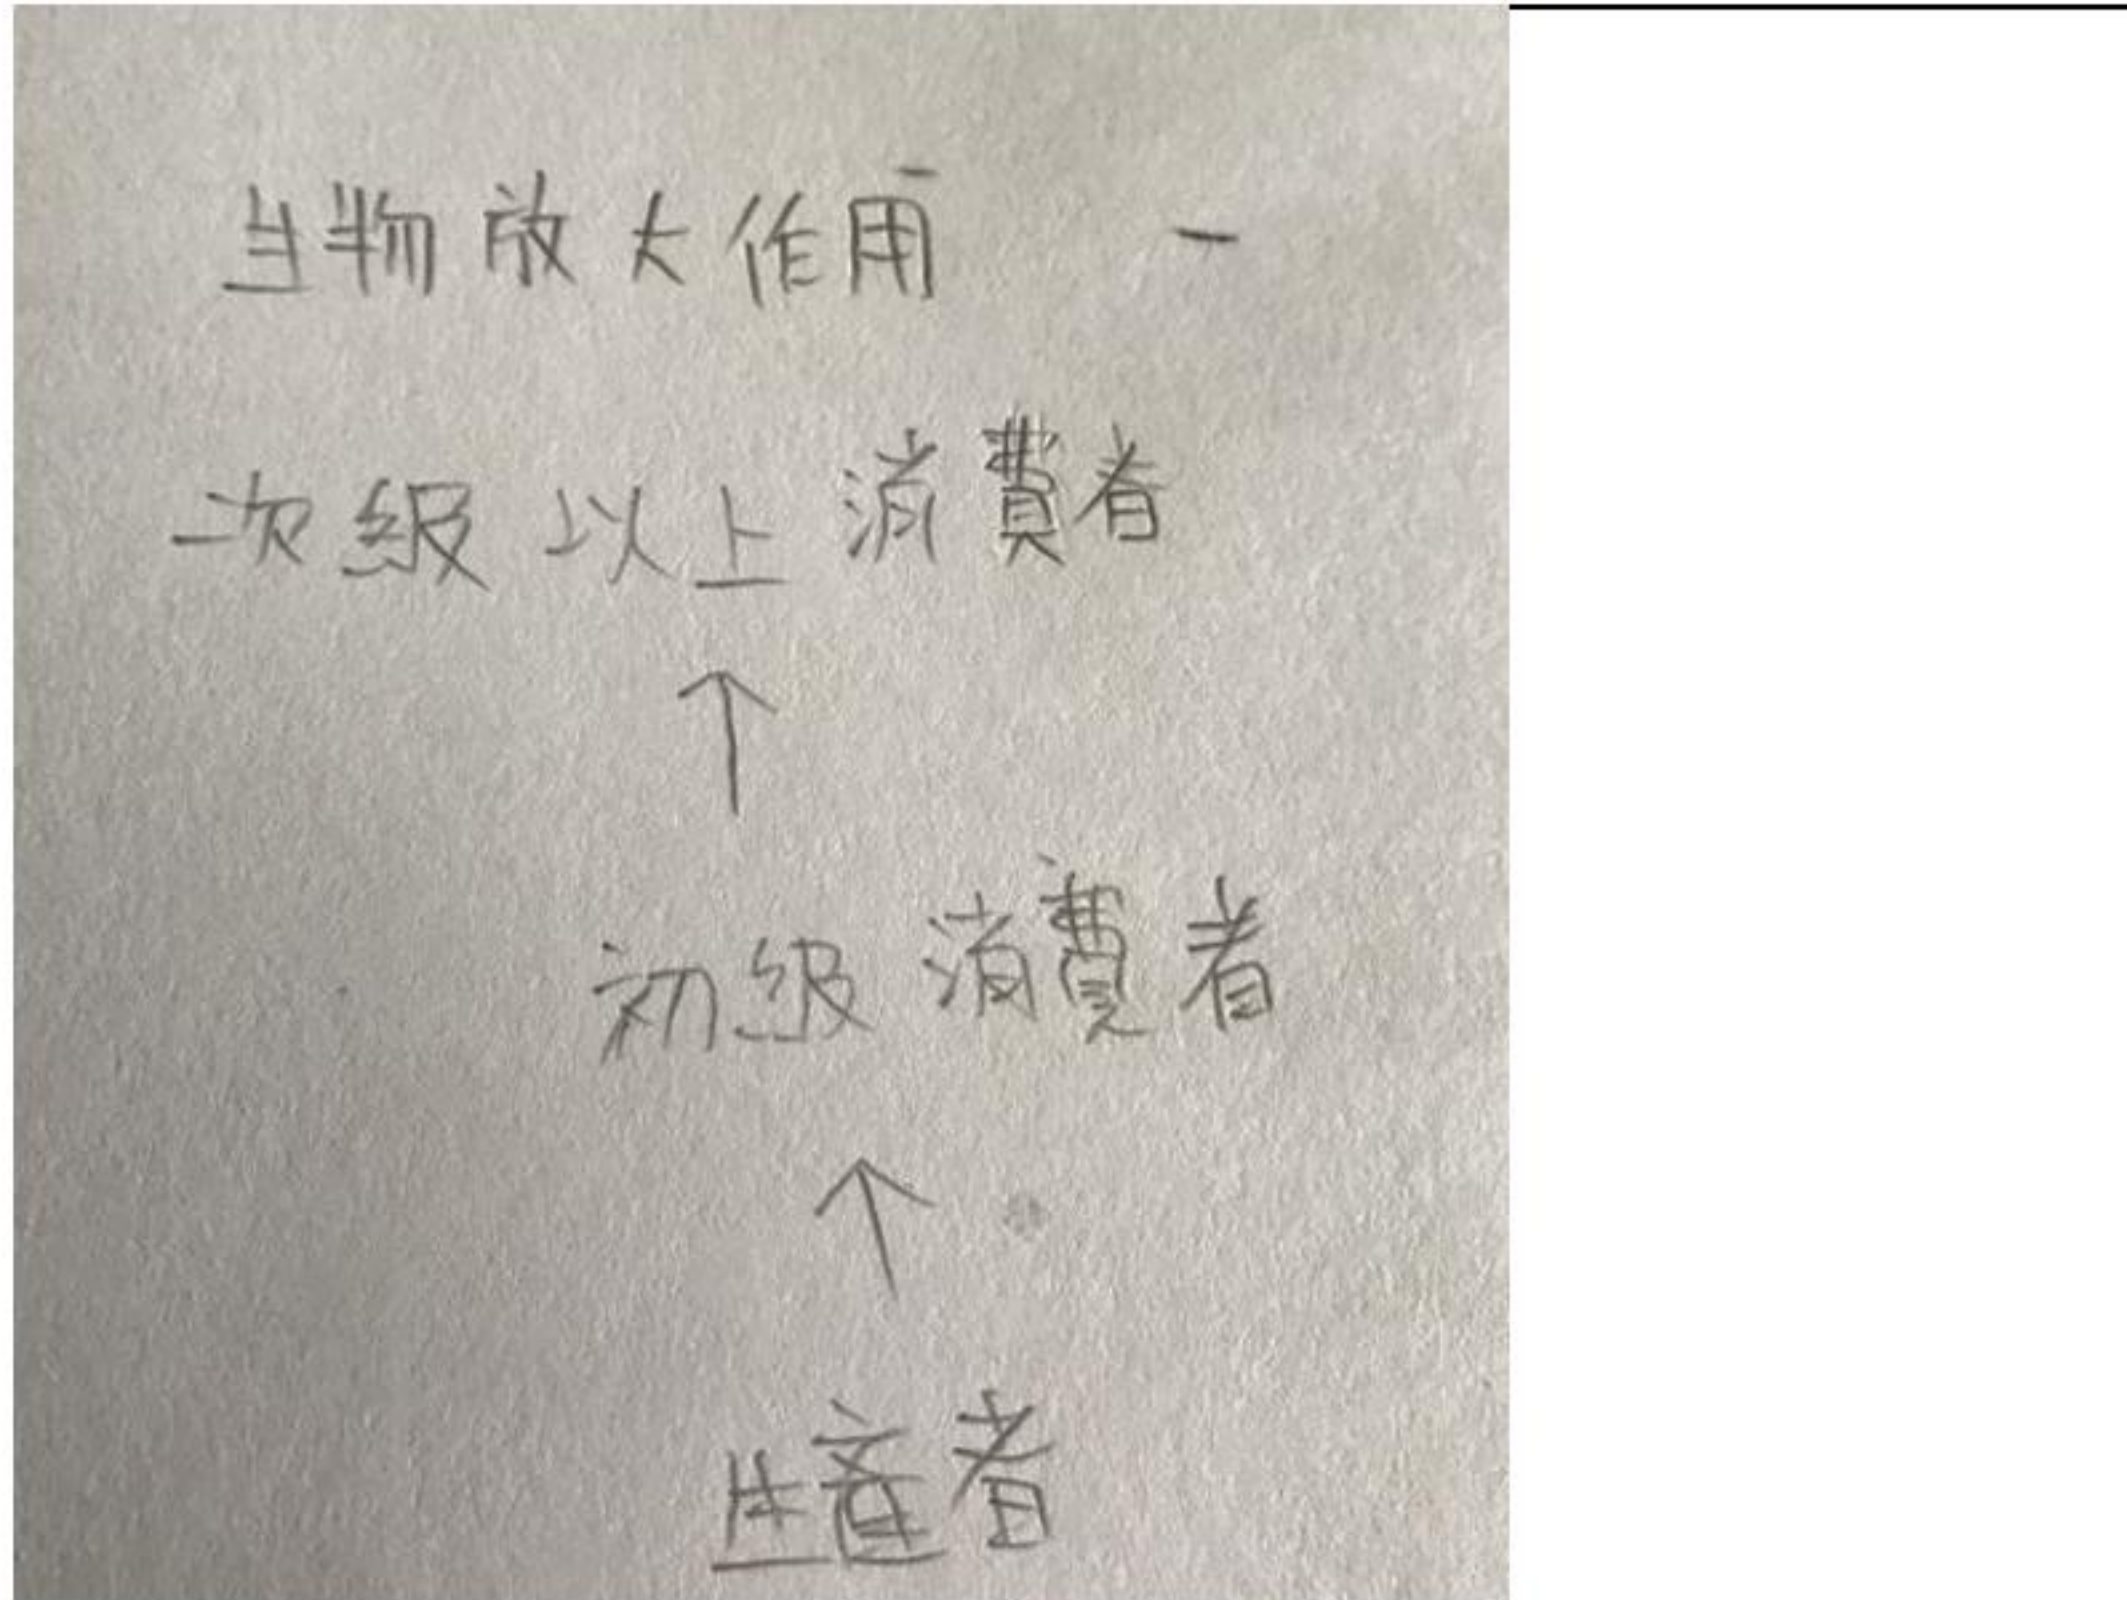 生物放大作用 -
次級以上消費者
↑
初級消費者
↑
生產者